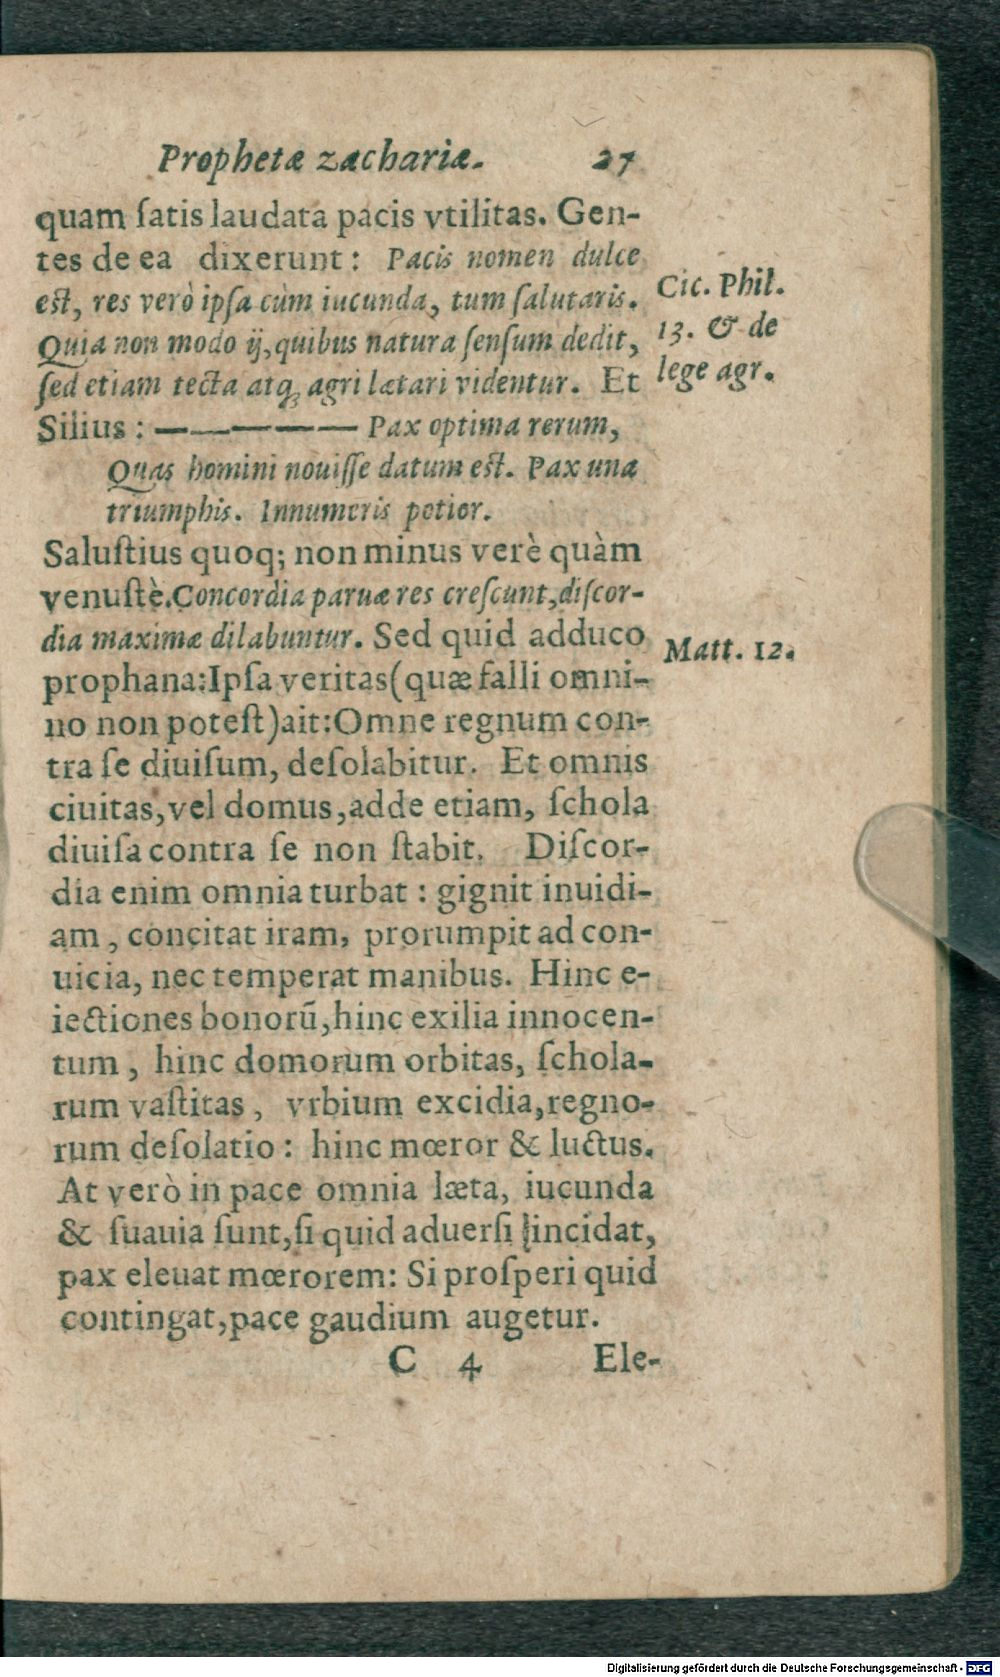 Prophetæ zachariæ. 27
quam ſatis laudata pacis vtilitas. Gen-
tes de ea dixerunt: Pacis nomen dulce
eſt, res verò ipſa cùm iucunda, tum ſalutaris.
Quia non modo ij, quibus natura ſenſum dedit,
ſed etiam tecta atq; agri lætari videntur. Et
Cic. Phil.
13. & de
lege agr.
Silius: — — — — — Pax optima rerum,
Quas homini nouiſſe datum eſt. Pax una
triumphis. Innumeris potior.
Saluſtius quoq; non minus verè quàm
venuſtè. Concordia paruæ res creſcunt, diſcor-
dia maximæ dilabuntur. Sed quid adduco
Matt. 12.
prophana: Ipſa veritas (quæ falli omni-
no non poteſt) ait: Omne regnum con-
tra ſe diuiſum, deſolabitur. Et omnis
ciuitas, vel domus, adde etiam, ſchola
diuiſa contra ſe non ſtabit. Diſcor-
dia enim omnia turbat: gignit inuidi-
am, concitat iram, prorumpit ad con-
uicia, nec temperat manibus. Hinc e-
iectiones bonorū, hinc exilia innocen-
tum, hinc domorum orbitas, ſchola-
rum vaſtitas, vrbium excidia, regno-
rum deſolatio: hinc mœror & luctus.
At verò in pace omnia læta, iucunda
& ſuauia ſunt, ſi quid aduerſi incidat,
pax eleuat mœrorem: Si proſperi quid
contingat, pace gaudium augetur.
C 4 Ele-
Digitalisierung gefördert durch die Deutsche Forschungsgemeinschaft - DFG